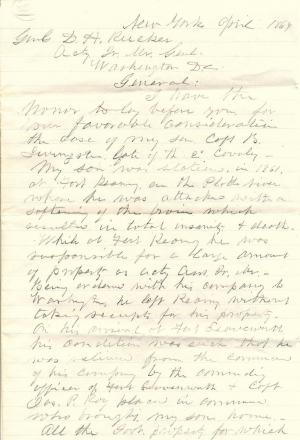 New York April 1869
Genl D. H. Rucker
Actg Qr. Mr. Genl.
Washington D.C.
General:
I have the
honor to lay before you for
your favorable consideration
the case of my son Capt B.
Livingston late of the 2d Cavalry
My son was stationed in 1861,
at Fort Kearny on the Platte river
where he was attacked with a
softening of the brain which
resulted in total insanity & death.
While at Fort Kearny he was
responsible for a large amount
of property as Actg Asst Qr. Mr.
Being ordered with his company to
Washington he left Kearny without
taking receipts for his property.
On his arrival at Fort Leavenworth
his condition was such that he
was relieved from the command
of his company by the commanding
officer of Fort Leavenworth & Capt
Jas. P. Roy placed in command
who brought my son home.
All the Govt property for which